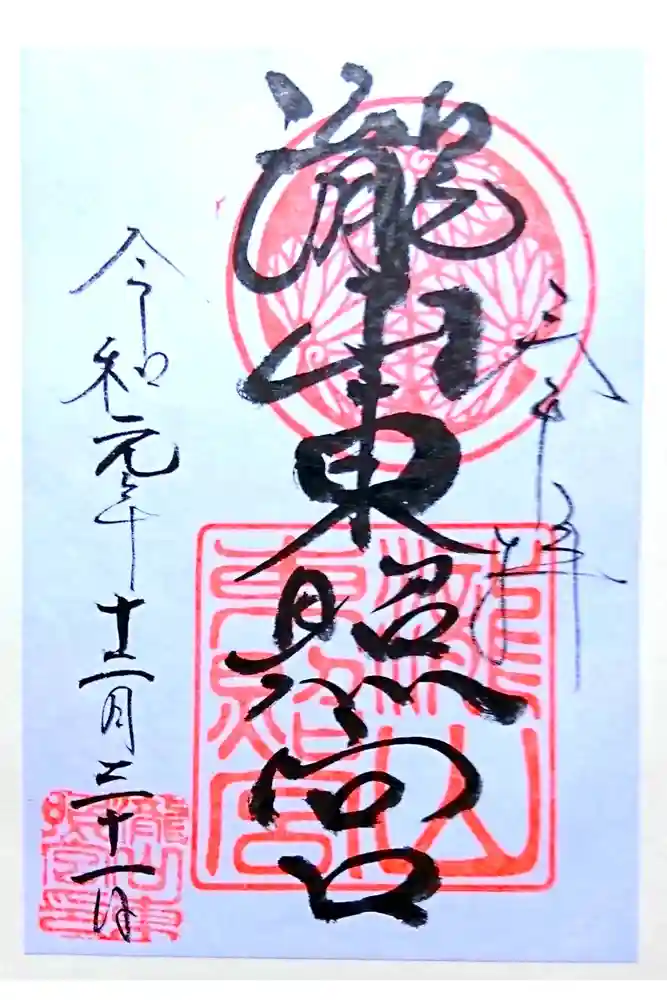 奉拝
瀧山東照宮
瀧山
東照宮
令和元年十二月三十一日
瀧山東
照宮印